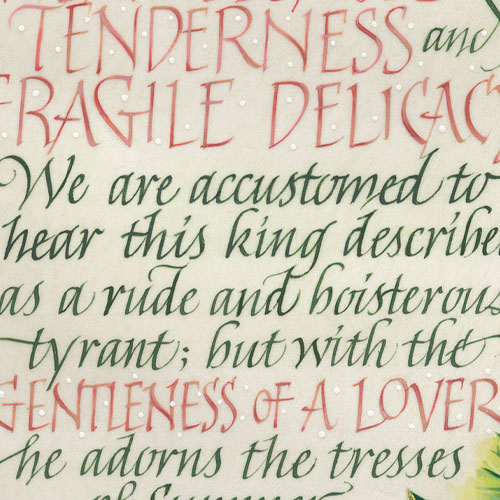 TENDERNESS and
FRAGILE DELICACY
We are accustomed to
hear this king describe
as a rude and boisterous
tyrant; but with the
GENTLENESS OF A LOVER
he adorns the tresses
of Summer